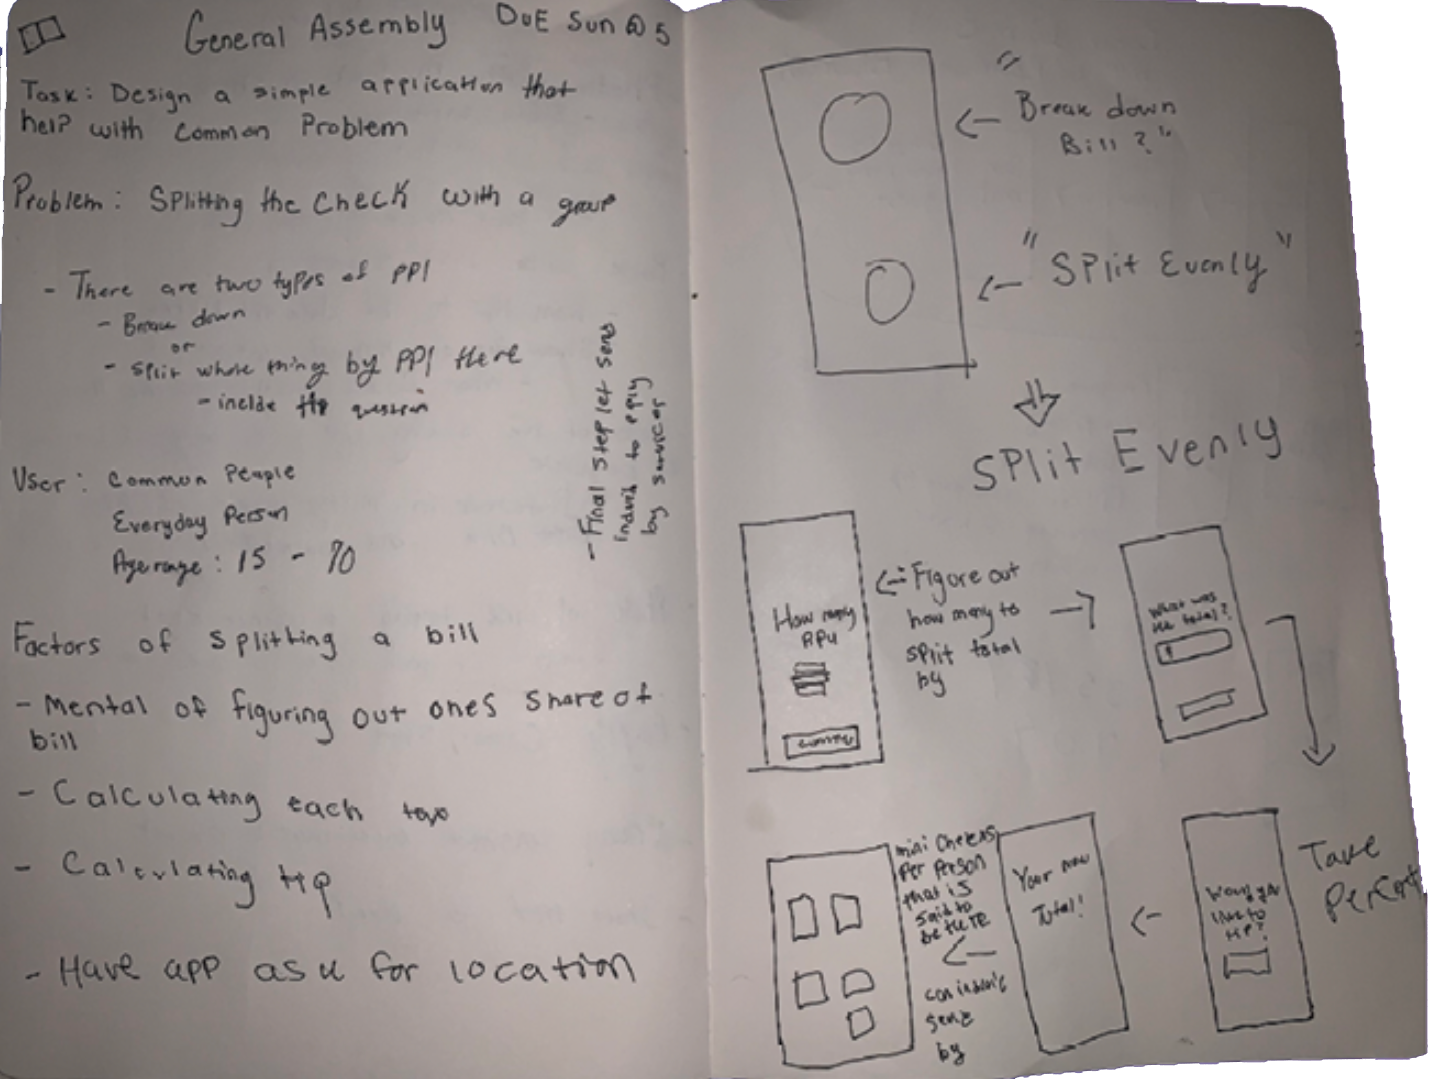 General Assembly DUE Sun @ 5
Task: Design a simple application that
help with common Problem
Problem: Splitting the Check with a group
- There are two types of PPl
- Break down
or
- Split whole thing by PPl there
- the question
User: Common People
Everyday Person
Age range: 15 - 70
- Final Step let send
by services
Factors of splitting a bill
- Mental of figuring out ones share of
bill
- Calculating each
- Calculating tip
- Have app ask for location
"Break down
Bill?"
"Split Evenly"
Split Evenly
How many
PPl
<- Figure out
how many to
split total
by
What was
the total?
Take
Percent
Would you
like to
tip?
Your new
Total!
mini checks
Per Person
that is
said to
be there
can
send
by